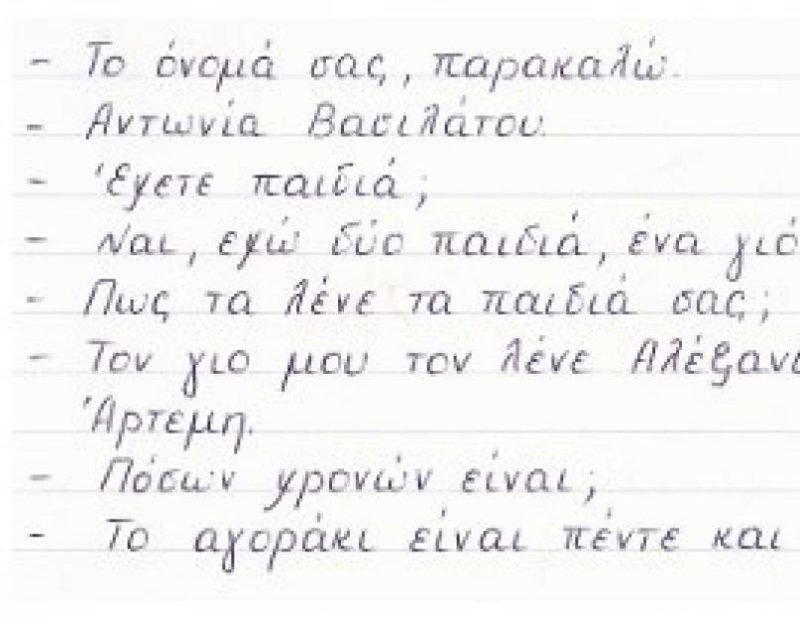 - Το όνομά σας, παρακαλώ.
- Αντωνία Βασιλάτου.
- Έχετε παιδιά;
- Ναι, εχώ δύο παιδιά, ένα γιό
- Πως τα λένε τα παιδιά σας;
- Τον γιο μου τον λένε Αλέξαν
Άρτεμη.
- Πόσων χρονών είναι;
- Το αγοράκι είναι πέντε και